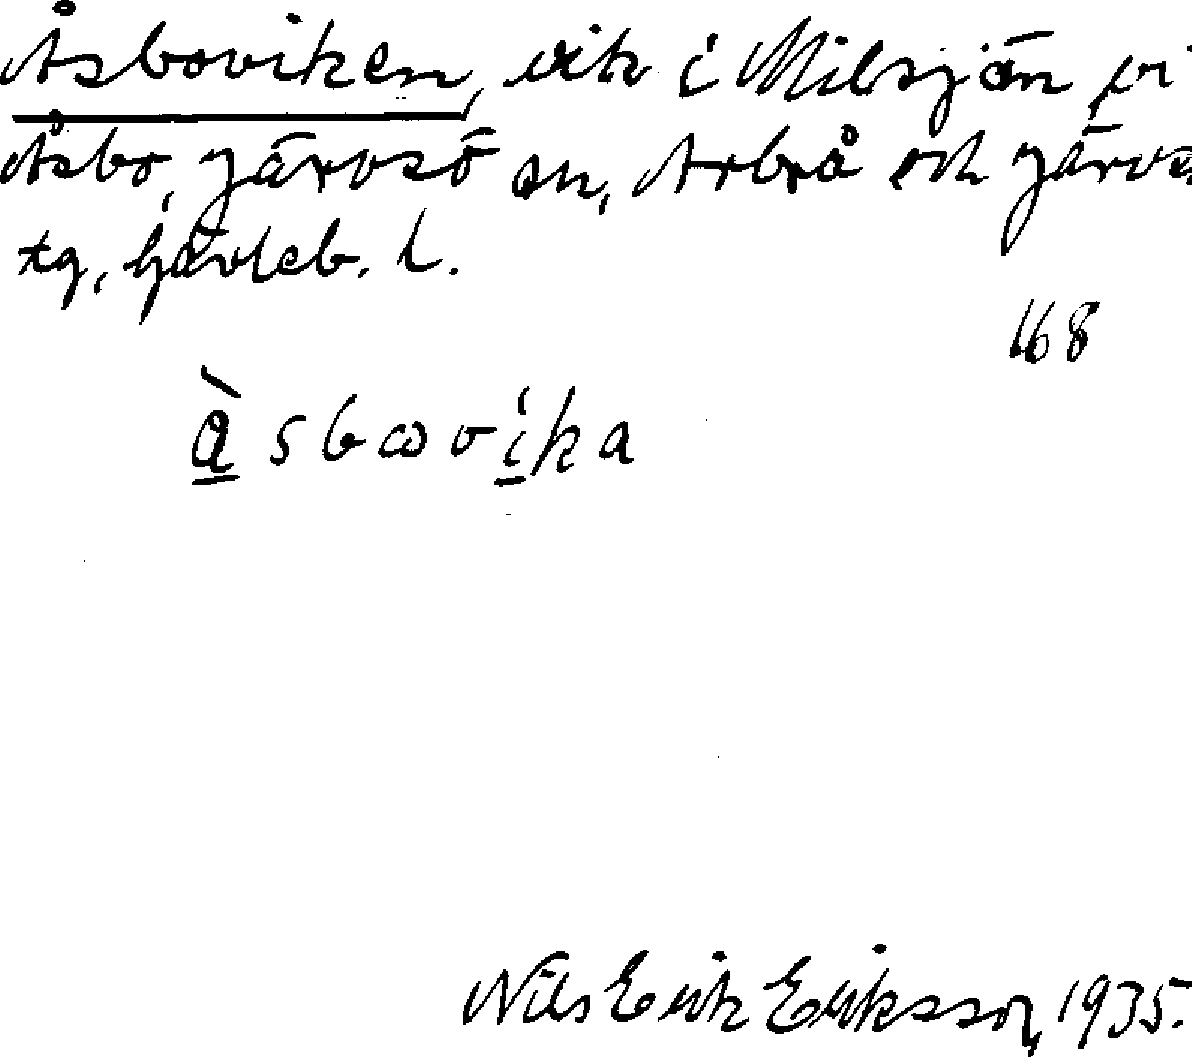 Åsboviken, vik i Milsjön vi
Åsbo, Järvsö sn, Arbrå och Järvs
tg, Gävleb. l.
168
àsbωvíka
Nils Erik Eriksson, 1935.